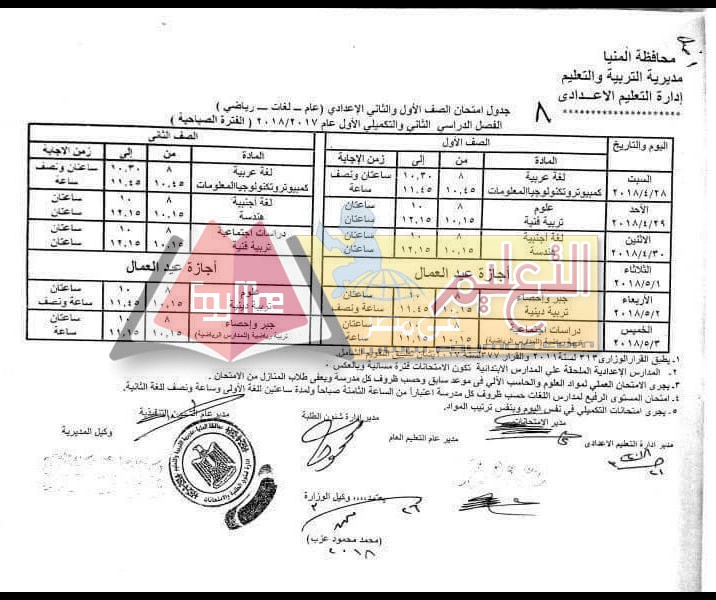 محافظة المنيا
مديرية التربية والتعليم
إدارة التعليم الإعدادى
********************
٨
جدول امتحان الصف الأول والثاني الإعدادي (عام – لغات – رياضي )
الفصل الدراسي الثاني والتكميلي الأول عام ٢٠١٨/٢٠١٧ ( الفترة الصباحية )
اليوم والتاريخ الصف الأول الصف الثانى
المادة من إلى زمن الإجابة المادة من إلى زمن الاجابة
السبت ٢٠١٨/٤/٢٨
لغة عربية ٨ ١٠,٣٠ ساعتان ونصف لغة عربية ٨ ١٠,٣٠ ساعتان ونصف
كمبيوتر وتكنولوجيا المعلومات ١٠,٤٥ ١١,٤٥ ساعة كمبيوتر وتكنولوجيا المعلومات ١٠,٤٥ ١١,٤٥ ساعة
الأحد ٢٠١٨/٤/٢٩
علوم ٨ ١٠ ساعتان لغة أجنبية ٨ ١٠ ساعتان
تربية فنية ١٠,١٥ ١٢,١٥ ساعتان هندسة ١٠,١٥ ١٢,١٥ ساعتان
الأثنين ٢٠١٨/٤/٣٠
لغة أجنبية ٨ ١٠ ساعتان دراسات اجتماعية ٨ ١٠ ساعتان
هندسة ١٠,١٥ ١٢,١٥ ساعتان تربية فنية ١٠,١٥ ١٢,١٥ ساعتان
الثلاثاء ٢٠١٨/٥/١ أجازة عيد العمال أجازة عيد العمال
الأربعاء ٢٠١٨/٥/٢
جبر وإحصاء ٨ ١٠ ساعتان علوم ٨ ١٠ ساعتان
تربية دينية ١٠,١٥ ١١,٤٥ ساعة ونصف تربية دينية ١٠,١٥ ١١,٤٥ ساعة ونصف
الخميس ٢٠١٨/٥/٣
دراسات اجتماعية ٨ ١٠ ساعتان جبر وإحصاء ٨ ١٠ ساعتان
تربية رياضية (للمدارس الرياضية) ١٠,١٥ ١١,١٥ ساعة تربية رياضية (للمدارس الرياضية) ١٠,١٥ ١١,١٥ ساعة
١. يطبق القرار الوزارى ٣١٣ لسنة ٢٠١١ والقرار ٣٧٧ لسنة ٢٠١٧ التقويم الشامل.
٢. المدارس الإعدادية الملحقة علي المدارس الابتدائية تكون الامتحانات فترة مسائية وبالعكس.
٣. يجرى الامتحان العملي لمواد العلوم والحاسب الآلي فى موعد سابق وحسب ظروف كل مدرسة ويعفى طلاب المنازل من الامتحان.
٤. امتحان المستوى الرفيع لمدارس اللغات حسب ظروف كل مدرسة اعتباراً من الساعة الثامنة صباحاً ولمدة ساعتين للغة الأولى وساعة ونصف للغة الثانية.
٥. يجرى امتحانات التكميلي في نفس اليوم وبنفس ترتيب المواد.
مدير ادارة التعليم الاعدادى
مدير الامتحانات
مدير عام التعليم العام
مدير إدارة شئون الطلبة
وكيل المديرية
يعتمد،،،، وكيل الوزارة
(محمد محمود عزب)
٢٠١٨
التعليم
فى مصر